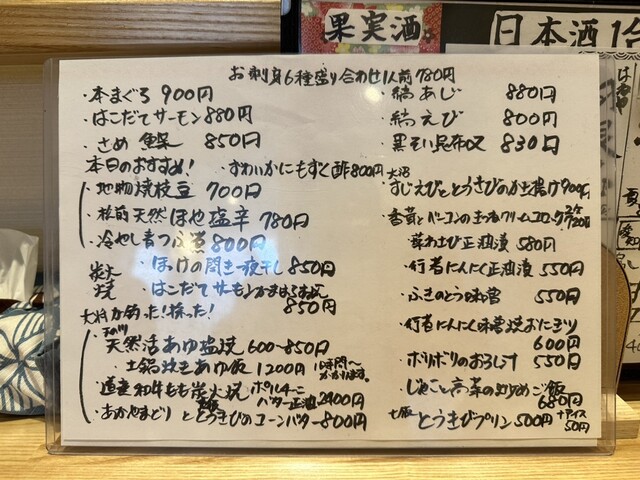 果実酒
日本酒1合
お刺身6種盛り合わせ1人前780円
・本まぐろ 900円
・はこだてサーモン 880円
・さめ 850円
・縞あじ 880円
・縞えび 800円
・黒そい昆布〆 830円
本日のおすすめ! ずわいかにもずく酢 800円
・地物焼枝豆 700円
・松前天然ほや塩辛 780円
・冷やし青つぶ煮 800円
炭火焼
・ほっけの開き一夜干し 850円
・はこだてサーモンかま 850円
大将が釣った!採った!
天然活あゆ塩焼 600~850円
・土鍋炊きあゆ飯 1200円 1時間〜かかります。
・道産和牛もも炭火焼 バター正油 2400円
・あかやまどりととうきびのコーンバター 800円
大沼
・すじえびととうきびのかき揚げ 900円
・香茸とベーコンのクリームコロッケ 2ケ 720円
・葉わさび正油漬 580円
・行者にんにく正油漬 550円
・ふきのとう味噌 550円
・行者にんにく味噌焼おにぎり 600円
・ボリボリのおろし汁 550円
・じゃこと高菜の炒めご飯 680円
七飯 とうきびプリン 500円 +アイス 50円